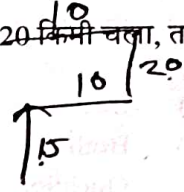 10
20 किमी चला, त
10 20
15